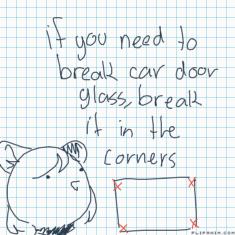 if you need to
break car door
glass, break
it in the
corners
FLIPANIM.COM